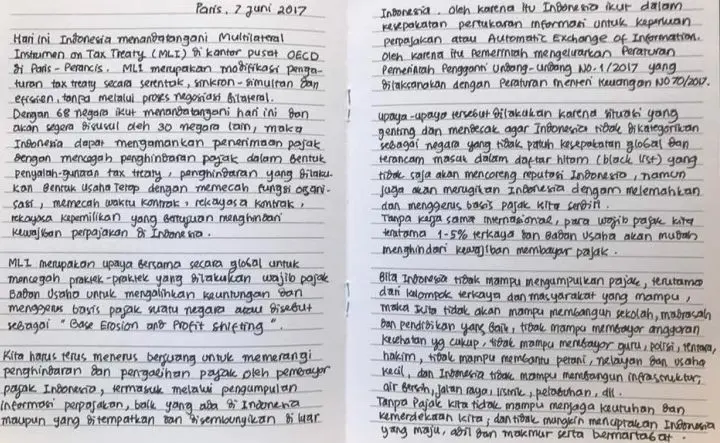 Paris, 7 Juni 2017
Hari ini Indonesia menandatangani Multilateral
Instrumen on Tax Treaty (MLI) di kantor pusat OECD
di Paris - Perancis. MLI merupakan modifikasi penga-
turan tax treaty secara serentak, sinkron - simultan dan
efisien, tanpa melalui proses negosiasi bilateral.
Dengan 68 negara ikut menandatangani hari ini dan
akan segera disusul oleh 30 negara lain, maka
Indonesia dapat mengamankan penerimaan pajak
dengan mencegah penghindaran pajak dalam bentuk
penyalah-gunaan tax treaty, penghindaran yang dilaku-
kan Bentuk Usaha Tetap dengan memecah fungsi organi-
sasi, memecah waktu kontrak, rekayasa kontrak,
rekayasa kepemilikan yang bertujuan menghindari
kewajiban perpajakan di Indonesia.
MLI merupakan upaya bersama secara global untuk
mencegah praktek-praktek yang dilakukan wajib pajak
Badan Usaha untuk mengalihkan keuntungan dan
menggerus basis pajak suatu negara atau disebut
sebagai "Base Erosion and Profit Shifting".
Kita harus terus menerus berjuang untuk memerangi
penghindaran dan pengalihan pajak oleh pembayar
pajak Indonesia, termasuk melalui pengumpulan
informasi perpajakan, baik yang ada di Indonesia
maupun yang ditempatkan dan disembunyikan di luar
Indonesia. Oleh karena itu Indonesia ikut dalam
kesepakatan pertukaran informasi untuk keperluan
perpajakan atau Automatic Exchange of Information.
Oleh karena itu Pemerintah mengeluarkan Peraturan
Pemerintah Pengganti Undang-Undang No.1/2017 yang
dilaksanakan dengan Peraturan Menteri Keuangan No 70/2017.
Upaya-upaya tersebut dilakukan karena situasi yang
genting dan mendesak agar Indonesia tidak dikategorikan
sebagai negara yang tidak patuh kesepakatan global dan
terancam masuk dalam daftar hitam (black list) yang
tidak saja akan mencoreng reputasi Indonesia, namun
juga akan merugikan Indonesia dengan melemahkan
dan menggerus basis pajak kita sendiri.
Tanpa kerja sama internasional, para wajib pajak kita
terutama 1-5% terkaya dan Badan Usaha akan mudah
menghindari kewajiban membayar pajak.
Bila Indonesia tidak mampu mengumpulkan pajak, terutama
dari kelompok terkaya dan masyarakat yang mampu,
maka kita tidak akan mampu membangun sekolah, madrasah
dan pendidikan yang baik, tidak mampu membayar anggaran
kesehatan yg cukup, tidak mampu membayar guru, polisi, tentara,
hakim, tidak mampu membantu petani, nelayan dan usaha
kecil, dan Indonesia tidak mampu membangun infrastruktur,
air bersih, jalan raya, listrik, pelabuhan, dll.
Tanpa pajak kita tidak mampu menjaga keutuhan dan
kemerdekaan kita; dan tidak mungkin menciptakan Indonesia
yang maju, adil dan makmur serta bermartabat.